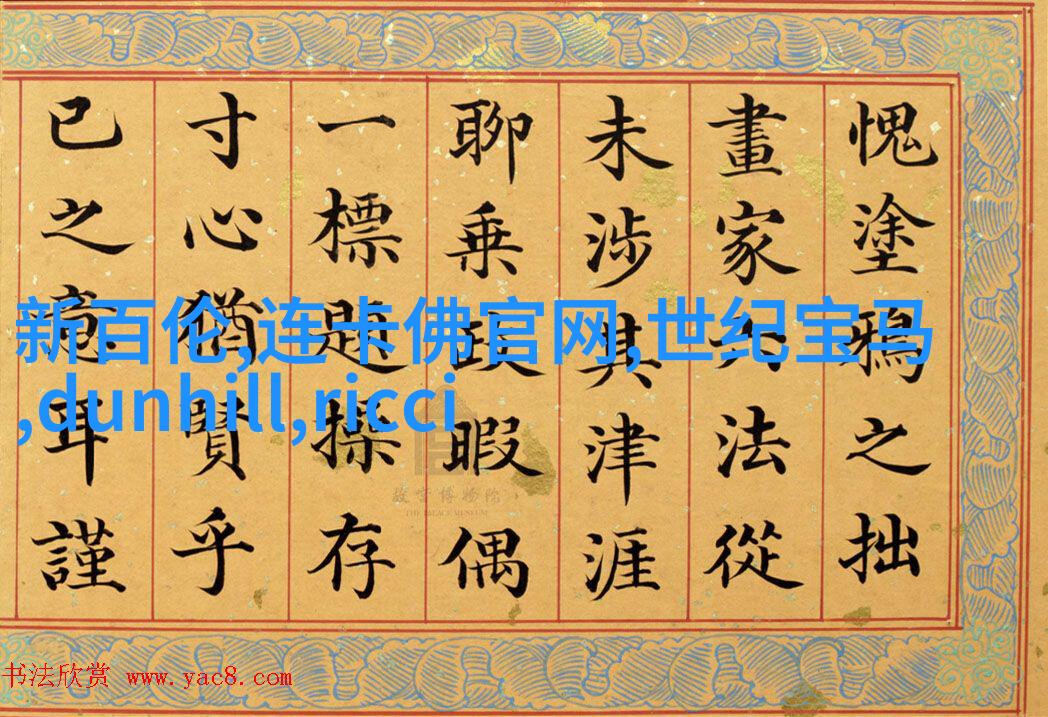 愧塗鴉之拙
畫家六法從
未涉其津涯
聊乘政暇偶
一標題操存
寸心猶賢乎
已之意耳謹
新百伦,连卡佛官网,世纪宝马
,dunhill,ricci
故宫博物院
THE PALACE MUSEUM
书法欣赏 www.yac8.com